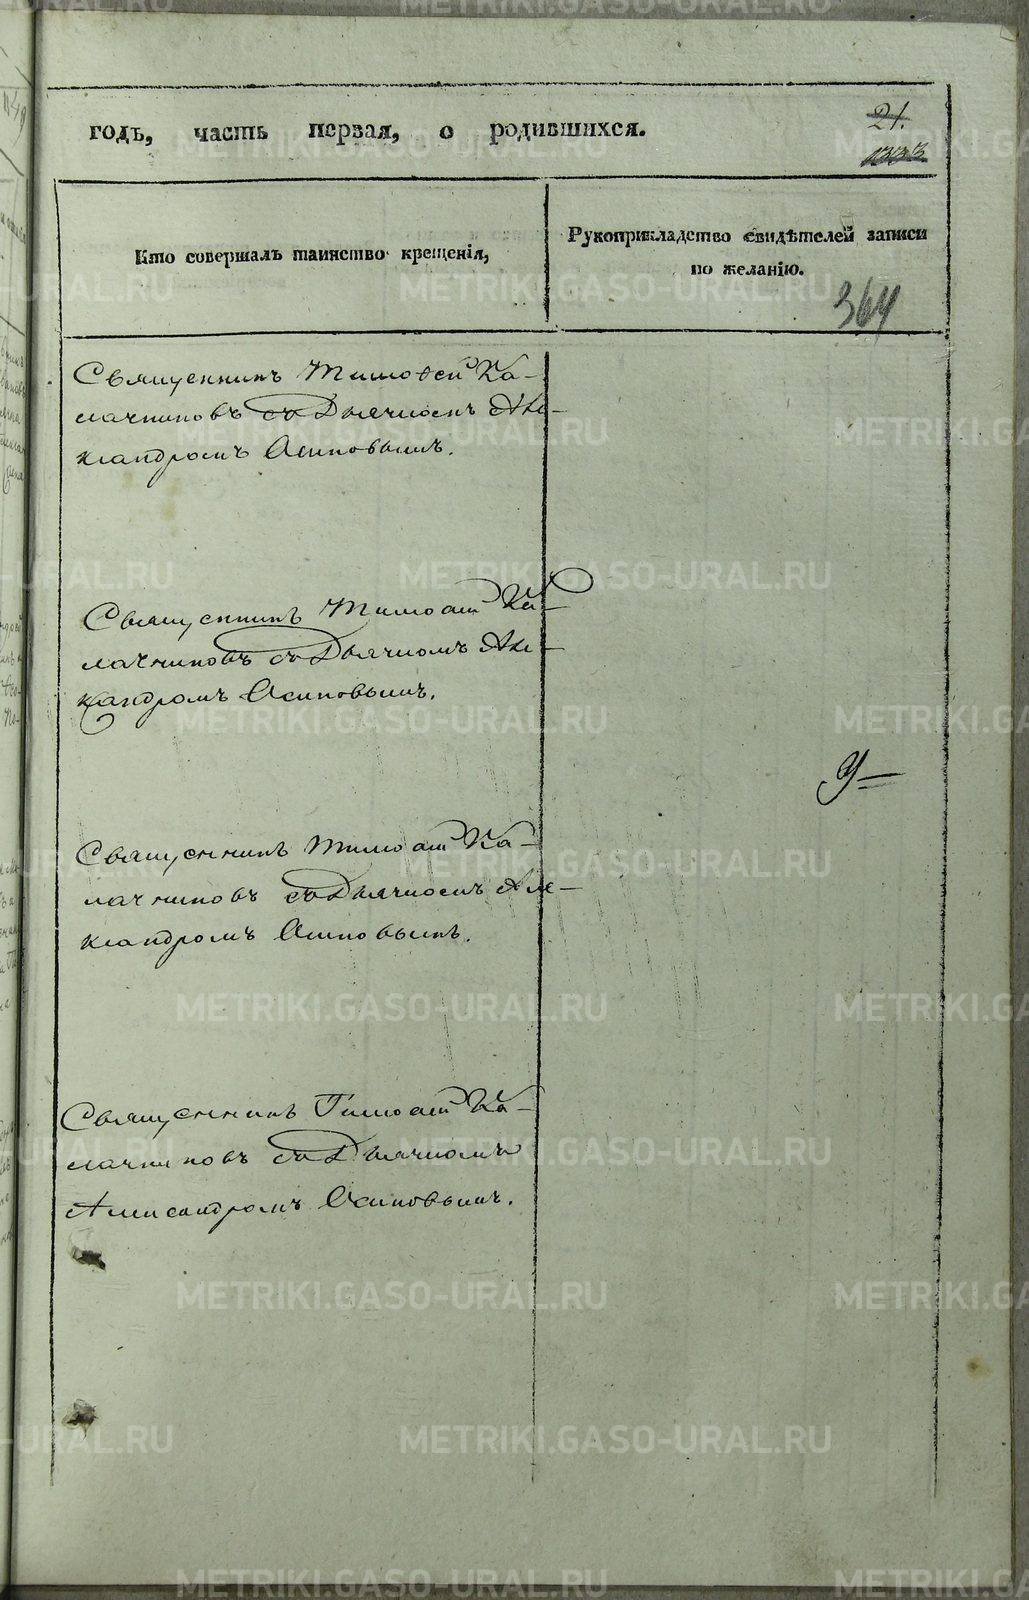 годъ, часть первая, о родившихся.
21.
1333
Кто совершалъ таинство крещенія,
Рукоприкладство свидѣтелей записи
по желанію.
364
Священникъ Тимоѳей Ка-
лачниковъ съ Дьячкомъ Але-
ксандромъ Осиповымъ.
Священникъ Тимоѳей Ка-
лачниковъ съ Дьячкомъ Але-
ксандромъ Осиповымъ.
У
Священникъ Тимоѳей Ка-
лачниковъ съ Дьячкомъ Але-
ксандромъ Осиповымъ.
Священникъ Тимоѳей Ка-
лачниковъ съ Дьячкомъ
Александромъ Осиповымъ.
METRIKI.GASO-URAL.RU